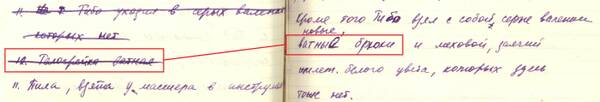 11. Тибо уходил в серых валенках
которых нет
12. Телогрейка ватная
11. Пила, взята у мастера в инструм
Кроме того Тибо взял с собой, серые валенки
новые,
ватные брюки и меховой, залений
жилет. белого цвета, которых здесь
тоже нет.